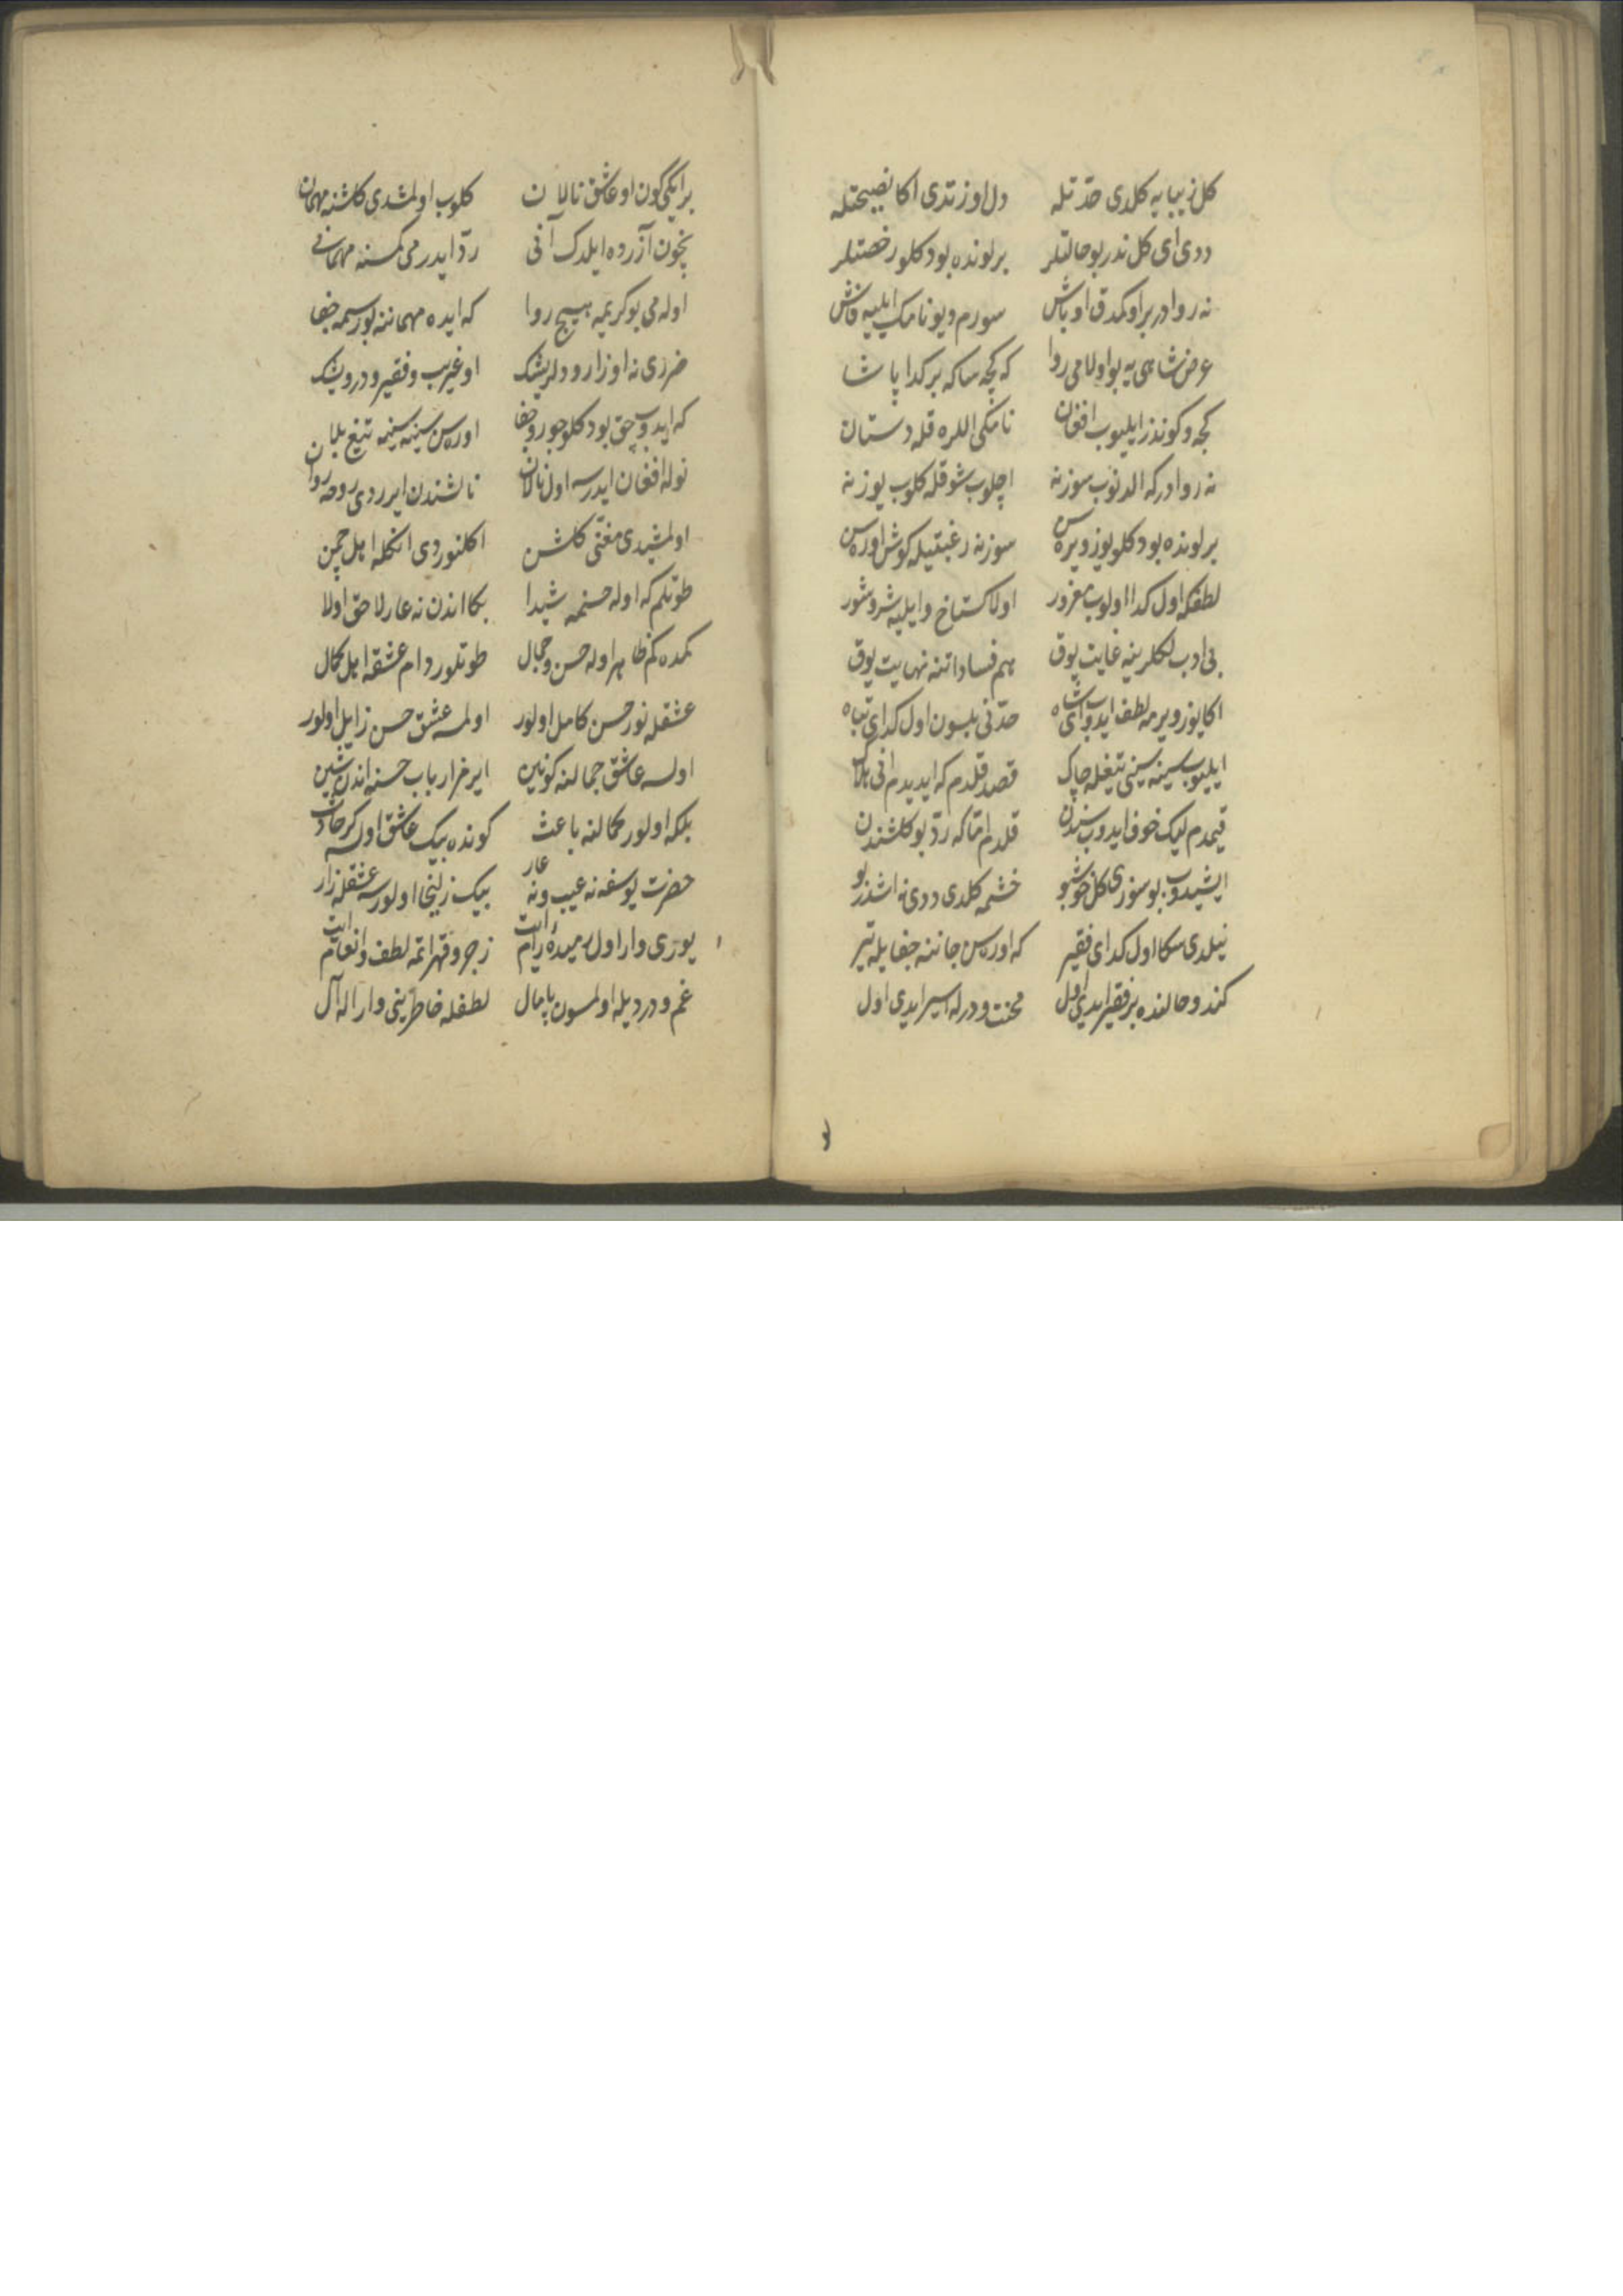 كل زيبايه كلدى حدّتله دل اوزتدى اكا نصيحتله
ددى اى كل ندر بو حالتلر بر لونده بودكلو رخصتلر
نه روادر بر اوكمدق اوباش سورم ديو نامك ايليه فاش
عرض شاهى يه بو اولامى روا كه كچه ساكه بر كدا پاشا
كجه وكوندز ايليوب افغان نامكى اللره قله دستان
نه روادر كه الدنوب سوزنه اچلوب شوقله كلوب يوزنه
بر لونده بودكلو يوز ويره سن سوزنه رغبتيله كوش اوره سن
لطفكه اول كدا اولوب مغرور اولا كستاخ وايليه شر وشور
بى ادبلكلرينه غايت يوق هم فساد اتنه نهايت يوق
اكا يوز ويرمه لطف ايدوب اى شاه حدّنى بلسون اول كداى تباه
ايليوب سينه سينى تيغله چاك قصد قلدم كه ايديدم انى هلاك
قيمدم ليك خوف ايدوب سندن قلدم امّا كه ردّ بو كلشندن
ايشيدوب بو سوزى كل خوشبو خشمه كلدى ددى نه اشدر بو
نيلدى سكا اول كداى فقير كه اوره سن جاننه جفايله تير
كندو حالنده بر فقير ايدى اول محنت ودرده اسير ايدى اول
بر ايكى كون او عاشق نالان كلوب اولمشدى كلشنه مهمان
نچون آزرده ايلدك آنى ردّ ايدرمى كسنه مهمانى
اوله مى بو كريمه هيچ روا كه ايده مهماننه بو رسمه جفا
ضررى نه او زار ودلريشك او غريب وفقير ودرويشك
كه ايدوب حق بودكلو جور وجفا اوره سن سينه سينه تيغ بلا
نوله افغان ايدرسه اول نالان نالشندن ايرردى روحه روان
اولمشيدى مغنّى كلشن اكلنوردى انكله اهل چمن
طوتلم كه اوله حسنمه شيدا بكا اندن نه عار لاحق اولا
كمده كم ظاهر اوله حسن وجمال طوتلور دام عشقه اهل كمال
عشقله نور حسن كامل اولور اولمسه عشق حسن زايل اولور
اولسه عاشق جمالنه كونين ايرمز ارباب حسنه اندن شين
بلكه اولور كمالنه باعث كونده بيك عاشق اولسه كر حادث
حضرت يوسفه نه عيب ونه عار بيك زليخا اولورسه عشقله زار
يورى وار اول رميده يى رام ايت زجر وقهر اتمه لطف وانعام ايت
غم ودرديله اولمسون پامال لطفله خاطرينى وار اله آل